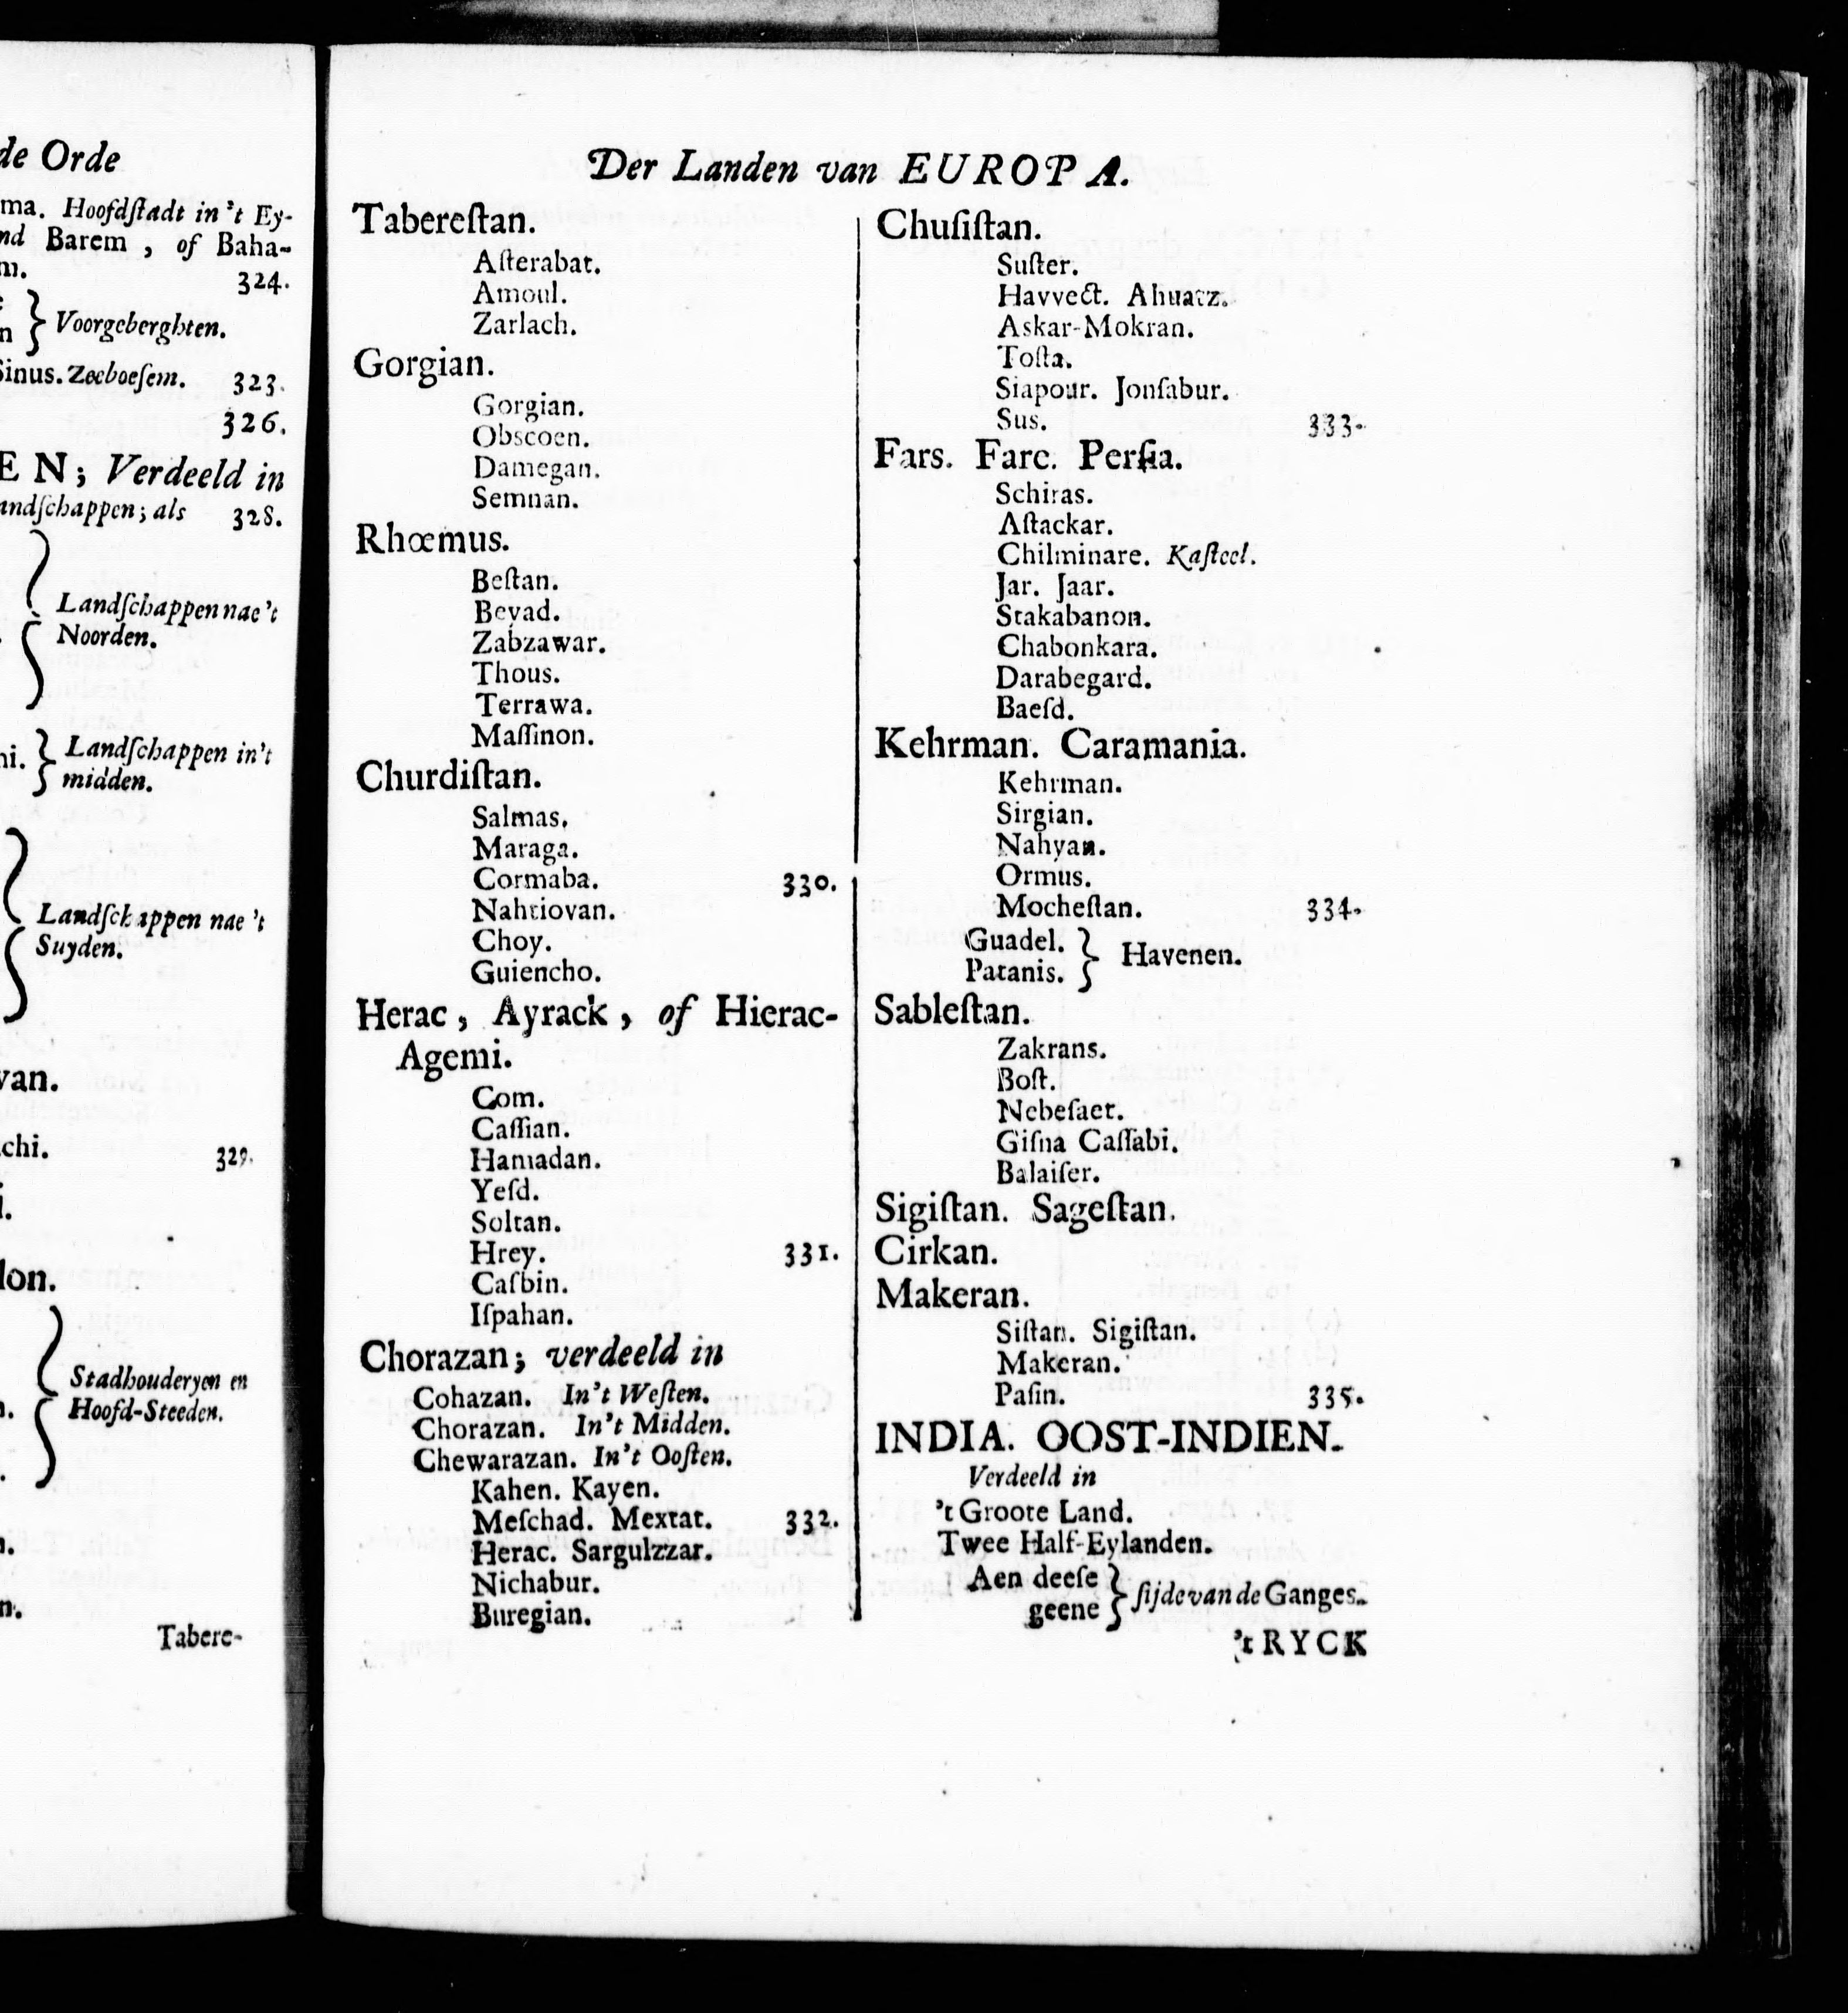 de Orde
ma. Hoofdſtadt in 't Ey-
nd Barem, of Baha-
m.
324.
n } Voorgeberghten.
Sinus. Zeeboeſem. 323.
326.
EN; Verdeeld in
andſchappen; als 328.
Landſchappen nae 't
Noorden.
Landſchappen in't
midden.
Landſchappen nae 't
Suyden.
van.
chi. 329.
lon.
Stadhouderyen en
Hoofd-Steeden.
n.
Tabere-
Der Landen van EUROPA.
Tabereſtan.
Aſterabat.
Amoul.
Zarlach.
Gorgian.
Gorgian.
Obscoen.
Damegan.
Semnan.
Rhœmus.
Beſtan.
Beyad.
Zabzawar.
Thous.
Terrawa.
Maſſinon.
Churdiſtan.
Salmas.
Maraga.
Cormaba. 330.
Nahtiovan.
Choy.
Guiencho.
Herac, Ayrack, of Hierac-
Agemi.
Com.
Caſſian.
Hamadan.
Yeſd.
Soltan.
Hrey. 331.
Caſbin.
Iſpahan.
Chorazan; verdeeld in
Cohazan. In't Weſten.
Chorazan. In't Midden.
Chewarazan. In't Ooſten.
Kahen. Kayen.
Meſchad. Mextat. 332.
Herac. Sargulzzar.
Nichabur.
Buregian.
Chuſiſtan.
Suſter.
Havvect. Ahuatz.
Askar-Mokran.
Toſta.
Siapour. Jonſabur.
Sus. 333.
Fars. Farc. Perſia.
Schiras.
Aſtackar.
Chilminare. Kaſteel.
Jar. Jaar.
Stakabanon.
Chabonkara.
Darabegard.
Baeſd.
Kehrman. Caramania.
Kehrman.
Sirgian.
Nahyan.
Ormus.
Mocheſtan. 334.
Guadel.
Patanis. } Havenen.
Sableſtan.
Zakrans.
Boſt.
Nebeſaet.
Giſna Caſſabi.
Balaiſer.
Sigiſtan. Sageſtan.
Cirkan.
Makeran.
Siſtan. Sigiſtan.
Makeran.
Paſin. 335.
INDIA. OOST-INDIEN.
Verdeeld in
't Groote Land.
Twee Half-Eylanden.
Aen deeſe
geene } ſijde van de Ganges.
't RYCK